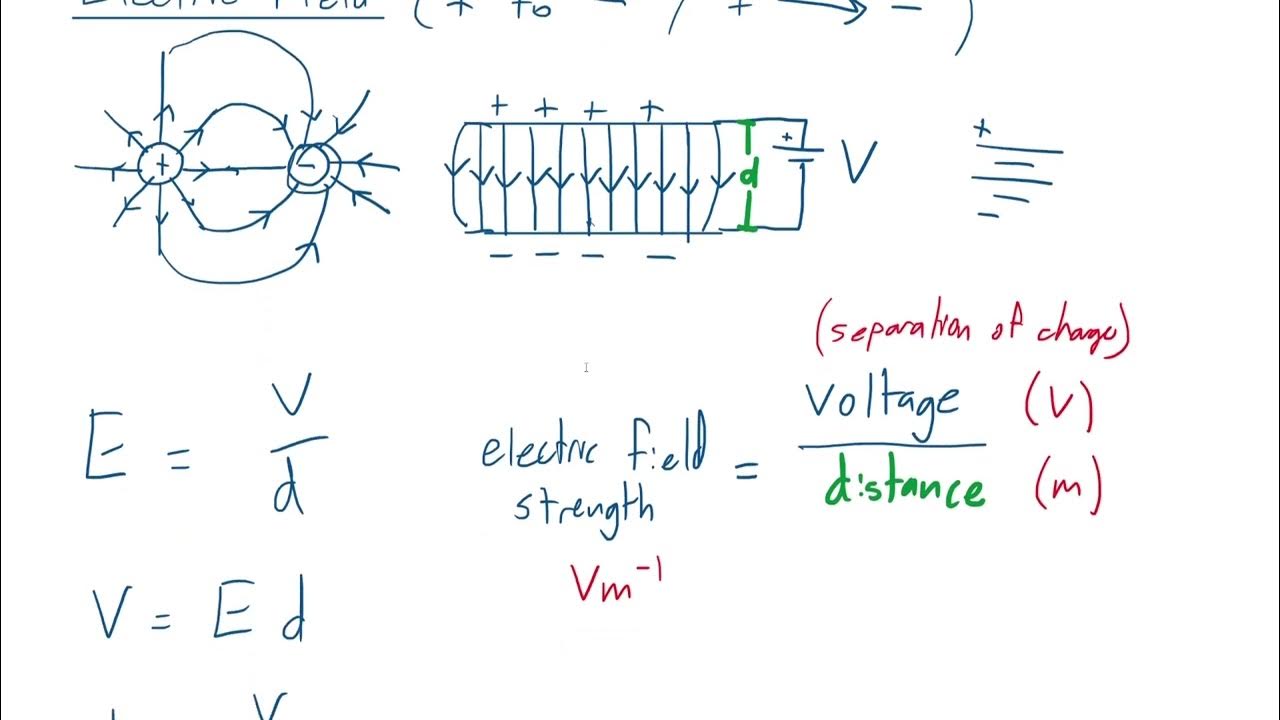 Electric Field (+ to - / + → -)
+ + + +
+ -
+
d
V
+
- - - -
(separation of charge)
E = V/d
electric field strength = voltage (V) / distance (m)
Vm⁻¹
V = E d
V